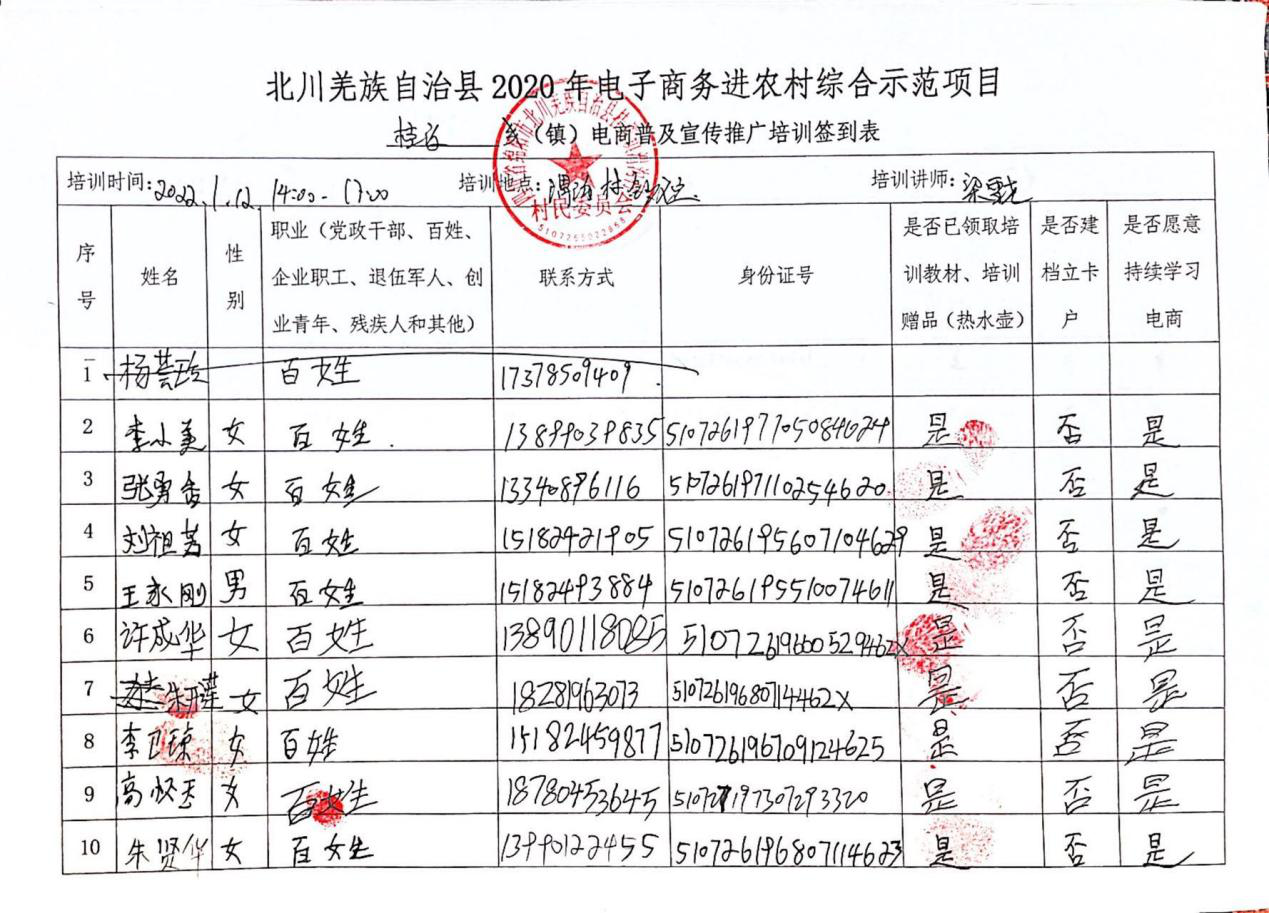 北川羌族自治县2020年电子商务进农村综合示范项目
乡（镇）电商普及宣传推广培训签到表
培训时间：2022.1.12. 14:00-17:00 培训地点： 培训讲师：
村民委员会
5107255022858
序号 姓名 性别 职业（党政干部、百姓、企业职工、退伍军人、创业青年、残疾人和其他） 联系方式 身份证号 是否已领取培训教材、培训赠品（热水壶） 是否建档立卡户 是否愿意持续学习电商
1 杨芸 百姓 17378509409
2 李小美 女 百姓 13899039835 510726197705084624 是 否 是
3 张勇 女 百姓 13340896116 510726197110254620 是 否 是
4 刘祖 女 百姓 15182421905 510726195607104629 是 否 是
5 王家刚 男 百姓 15182493884 510726195510074611 是 否 是
6 许成华 女 百姓 13890118085 51072619660529462X 是 否 是
7 朱 女 百姓 18281963073 51072619680714462X 是 否 是
8 李卫琼 女 百姓 15182459877 510726196709124625 是 否 是
9 高怀玉 女 百姓 18780453645 510727197307293320 是 否 是
10 朱贤华 女 百姓 13990122455 510726196807114623 是 否 是